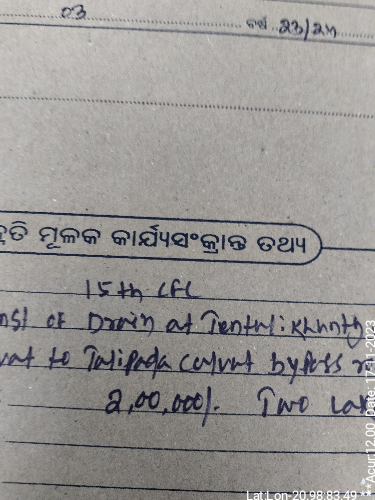 03
ବର୍ଷ 23/24
ମୂଳକ କାର୍ଯ୍ୟସଂକ୍ରାନ୍ତ ତଥ୍ୟ
15th CFC
of Drain at
to Talipada Culvert bypass
2,00,000/- Two
Lat Lon-20.98,83.49 ***Acur:12.00, Date: 17-11-2023